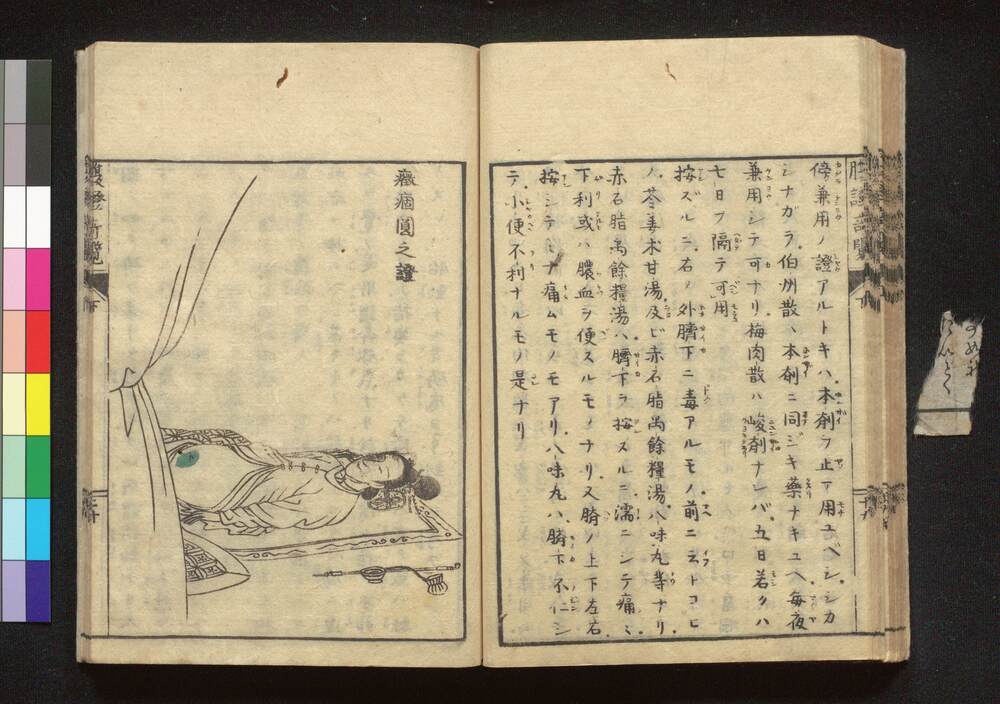 傍兼用ノ證アルトキハ本剤ヲ止テ用ユベシ。シカ
シナガラ。伯州散ハ本剤ニ同ジキ藥ナキユヘ毎夜
兼用シテ可ナリ梅肉散ハ峻剤ナレバ。五日若クハ
七日ヲ隔テ可用
按ズルニ。右ノ外臍下ニ毒アルモノ前ニ云トコロ
ノ苓姜朮甘湯及ビ赤石脂禹餘糧湯八味丸等ナリ。
赤石脂禹餘糧湯ハ臍下ヲ按スルニ濡ニシテ痛ミ
下利或ハ膿血ヲ便スルモノナリ又臍ノ上下左右
按シテミナ痛ムモノモアリ八味丸ハ臍下不仁シ
テ小便不利ナルモノ是ナリ
十九
癥痼圓之證
下
二十